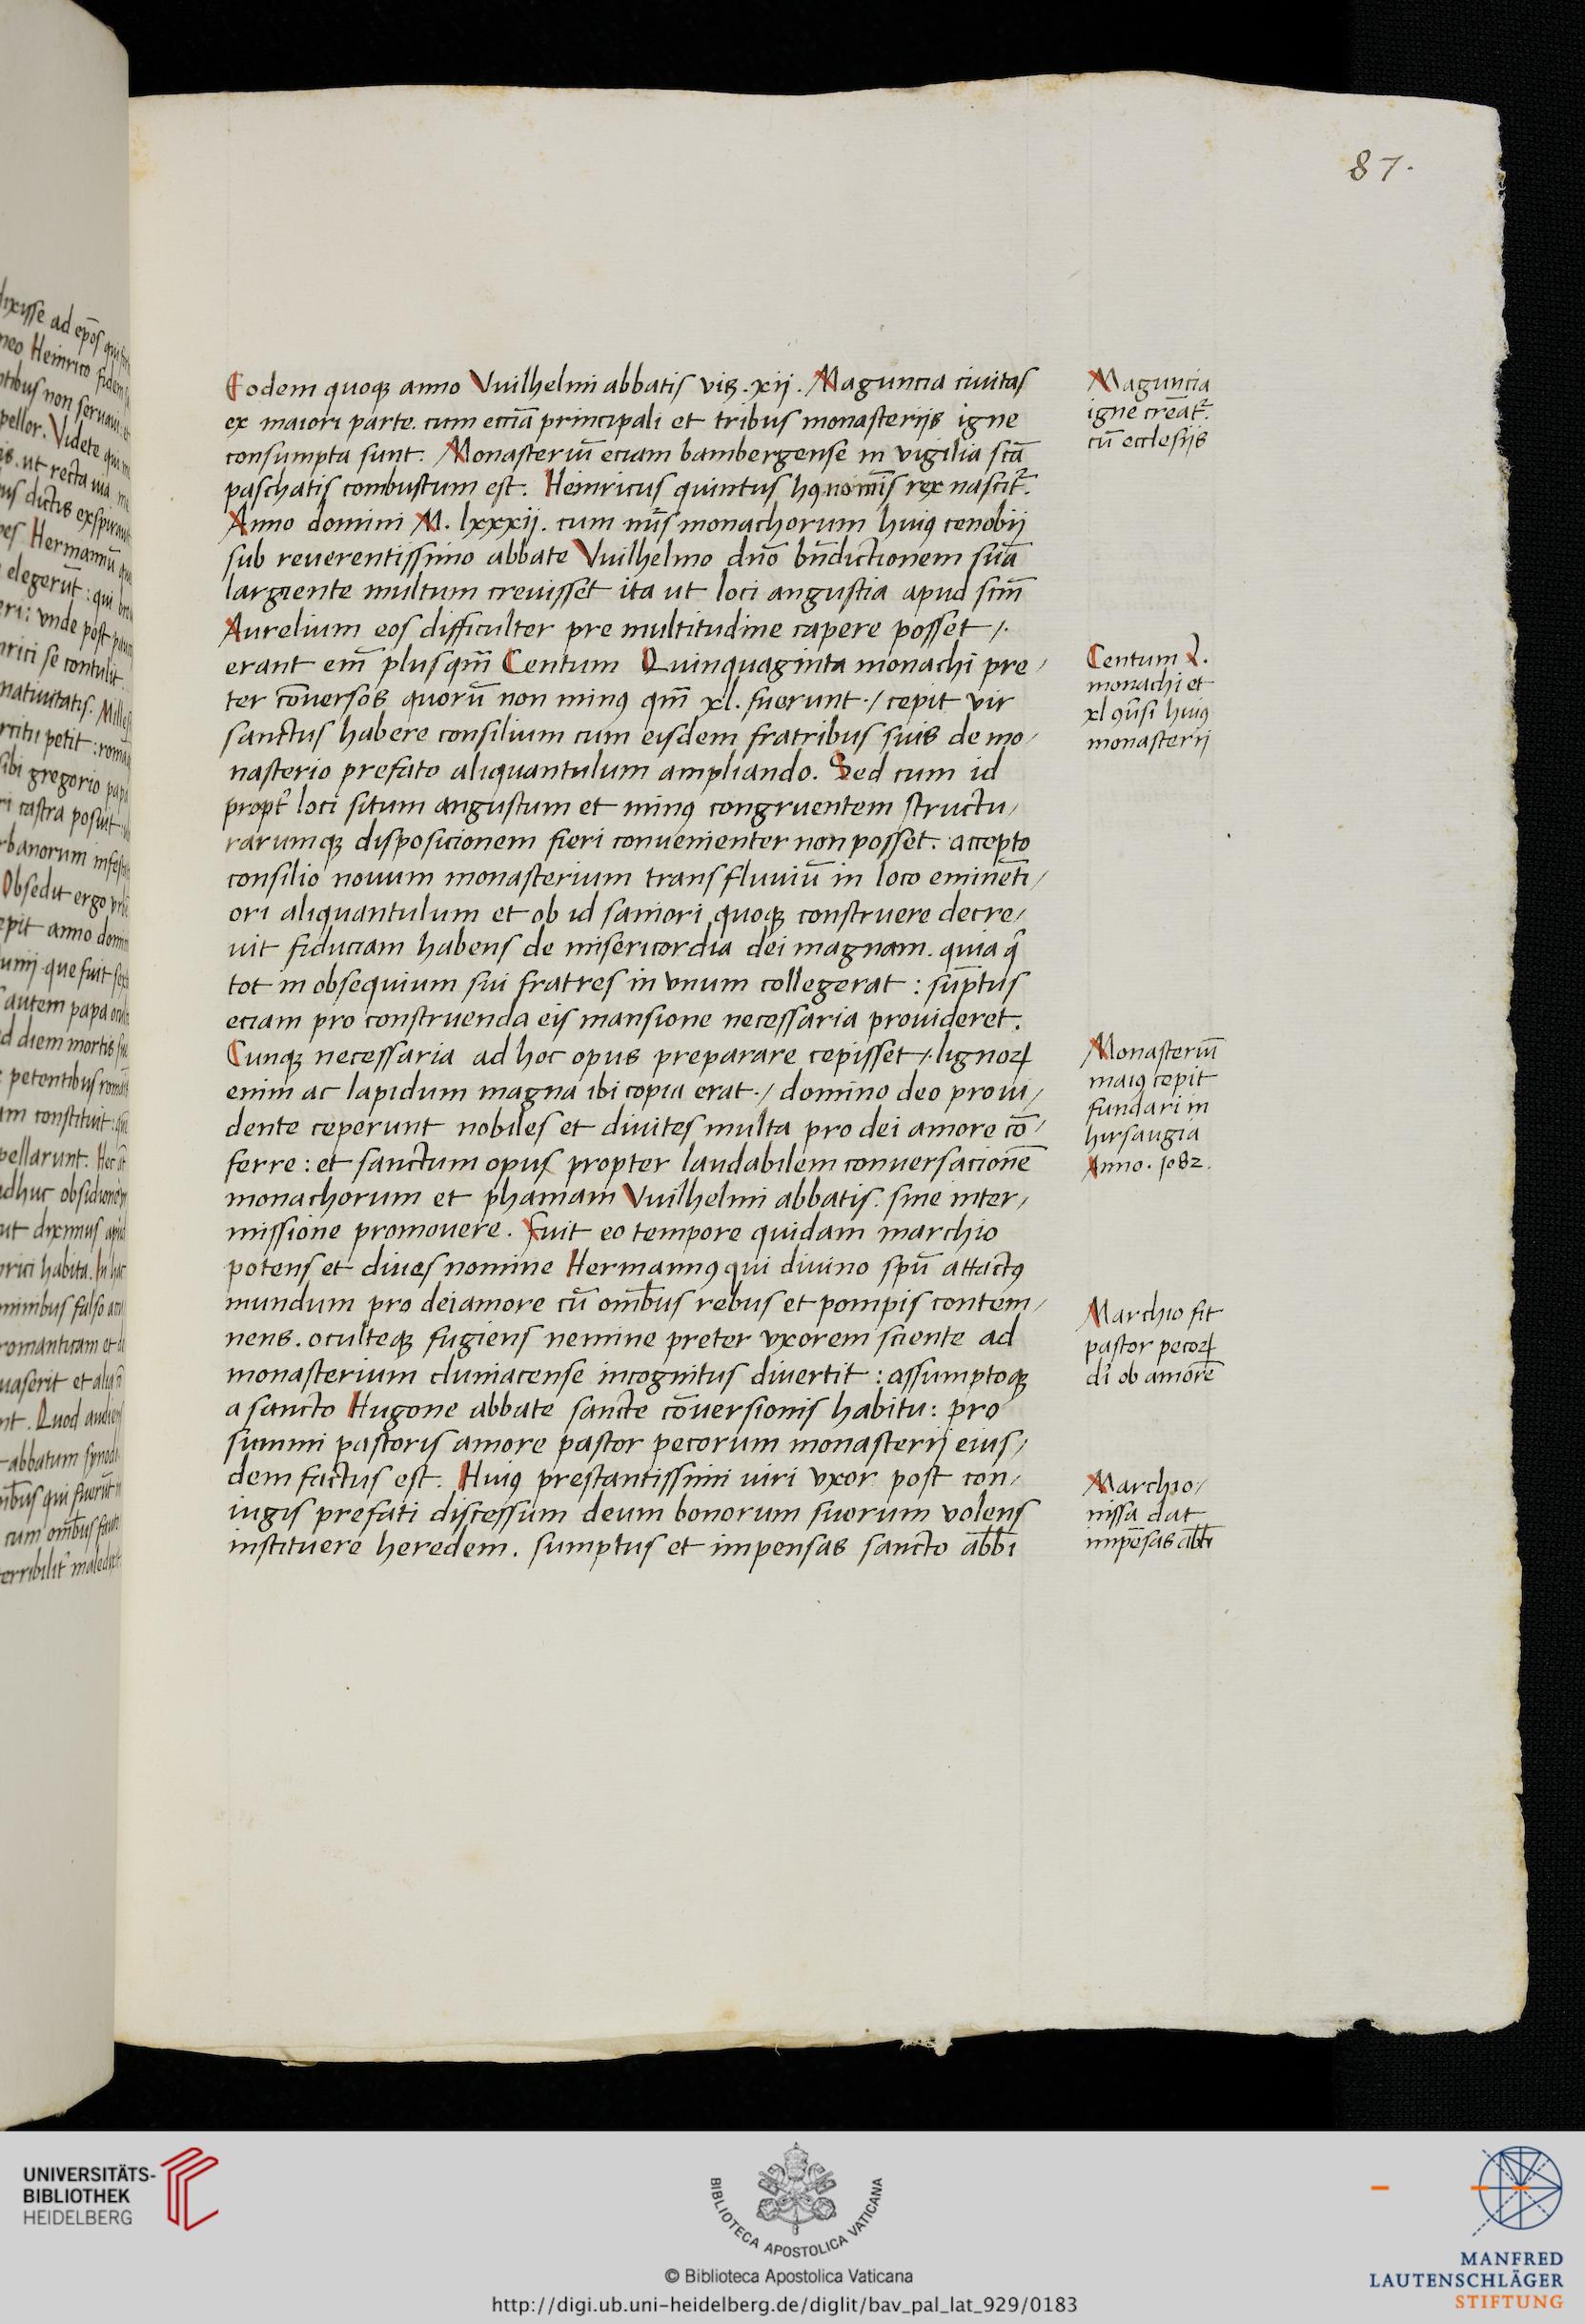 87.
Eodem quoqꝫ anno Vuilhelmi abbatis viꝫ. xij. Maguncia ciuitas
ex maiori parte. cum eccīa principali et tribus monasterijs igne
consumpta sunt. Monasteriū eciam bambergense in vigilia scā
paschatis combustum est. Heinricus quintus hꝯ noīnis rex nascit᷑.
Anno domini M. lxxxij. cum nūs monachorum huiꝯ cenobij
sub reuerentissimo abbate Vuilhelmo dn̄o bn̄dictionem suā
largiente multum creuisset ita ut loci angustia apud scm̄
Aurelium eos difficulter pre multitudine capere posset /.
erant em̄ plusqm̄ Centum Quinquaginta monachi pre/
ter cōuersos quorū non minꝯ qm̄ xl. fuerunt ./ cepit vir
sanctus habere consilium cum eisdem fratribus suis de mo/
nasterio prefato aliquantulum ampliando. Sed cum id
propt᷑ loci situm angustum et minꝯ congruentem structu/
rarumqꝫ disposicionem fieri conuenienter non posset. accepto
consilio nouum monasterium trans fluuiū in loco eminēti/
ori aliquantulum et ob id saniori quoqꝫ construere decre/
uit fiduciam habens de misericordia dei magnam. quia q̄
tot in obsequium sui fratres in vnum collegerat : sūptus
eciam pro construenda eis mansione necessaria prouideret.
Cunqꝫ necessaria ad hoc opus preparare cepisset /. lignoꝝ
enim ac lapidum magna ibi copia erat ./ domino deo proui/
dente ceperunt nobiles et diuites multa pro dei amore cō/
ferre : et sanctum opus propter laudabilem conuersacionē
monachorum et phamam Vuilhelmi abbatis. sine inter/
missione promouere. Fuit eo tempore quidam marchio
potens et diues nomine Hermannꝯ qui diuino spū attactꝯ
mundum pro dei amore cū om̄bus rebus et pompis contem/
nens. oculteqꝫ fugiens nemine preter vxorem sciente ad
monasterium cluniacense incognitus diuertit : assumptoqꝫ
a sancto Hugone abbate sancte cōuersionis habitu : pro
summi pastoris amore pastor pecorum monasterij eius/
dem factus est. Huiꝯ prestantissimi uiri vxor post con/
iugis prefati discessum deum bonorum suorum volens
instituere heredem. sumptus et impensas sancto ab̄bi
Maguncia
igne creāt᷑.
cū ecclesijs
Centum L.
monachi et
xl ꝯūsi huiꝯ
monasterij
Monasteriū
maiꝯ cepit
fundari in
hirsaugia
Anno. 1082.
Marchio fit
pastor pecoꝝ
dī ob amorē
Marchio/
nissa dat
impēsas ab̄bti
UNIVERSITÄTS-
BIBLIOTHEK
HEIDELBERG
BIBLIOTECA APOSTOLICA VATICANA
© Biblioteca Apostolica Vaticana
http://digi.ub.uni-heidelberg.de/diglit/bav_pal_lat_929/0183
MANFRED
LAUTENSCHLÄGER
STIFTUNG